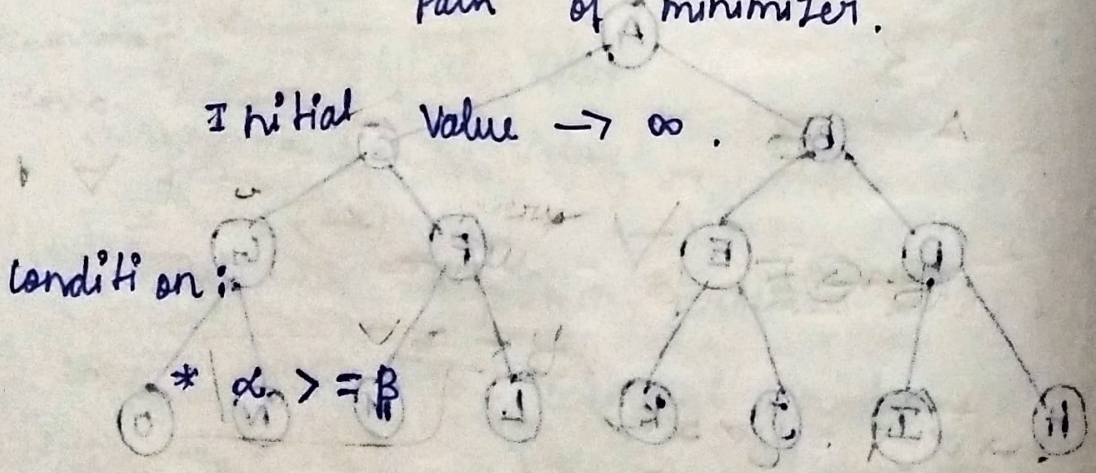 Path of minimizer.
Initial Value → ∞.
Condition:
* α >= β